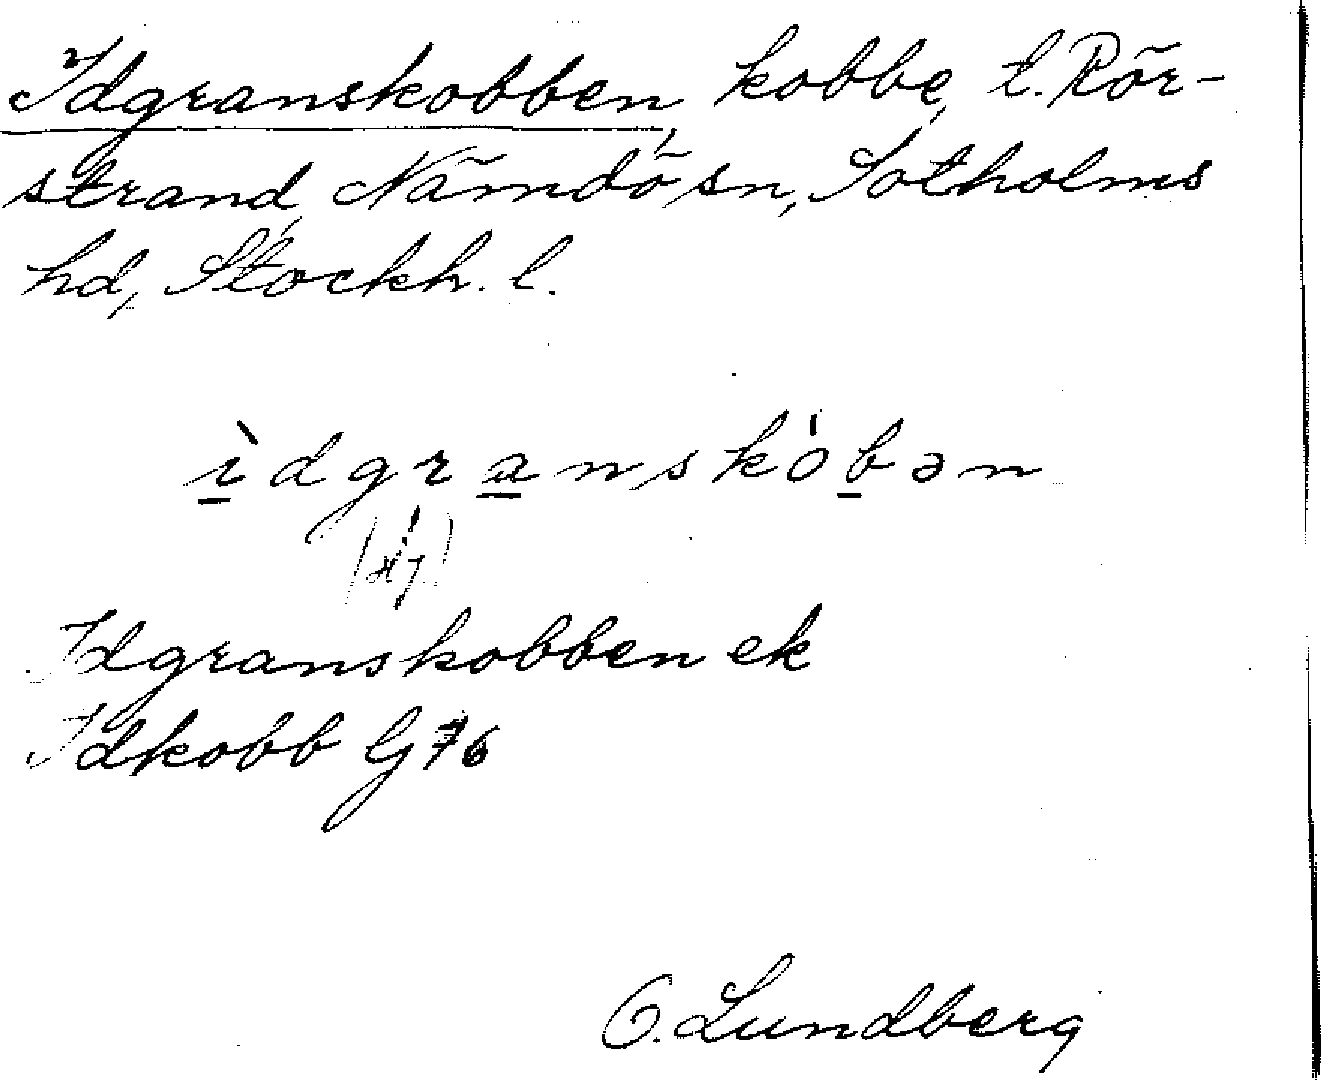 Idgranskobben, kobbe, t. Rör-
strand, Nämdö sn, Sotholms
hd, Stockh. l.
ìdgranskȯbən
Idgranskobben ek
Idkobb G76
O. Lundberg